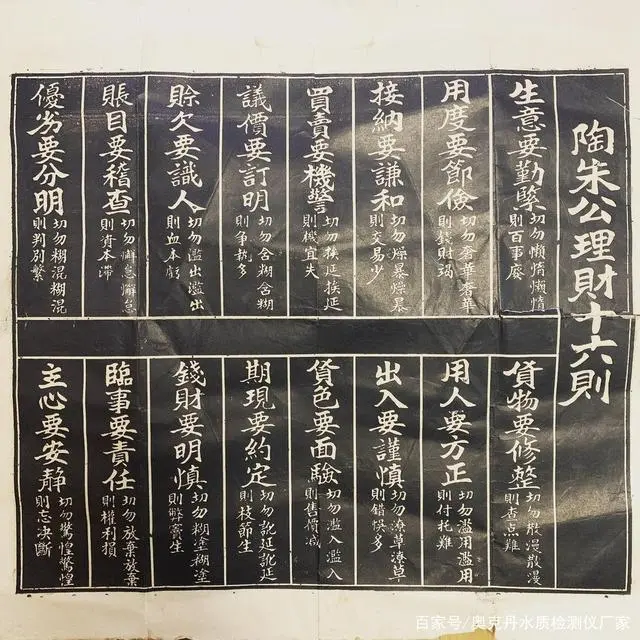 陶朱公理財十六則
生意要勤緊
切勿懶惰懶惰
則百事廢
用度要節儉
切勿奢華奢華
則錢財竭
接納要謙和
切勿燥暴燥暴
則交易少
買賣要機警
切勿挨延挨延
則機宜失
議價要訂明
切勿含糊含糊
則爭執多
賒欠要識人
切勿濫出濫出
則血本虧
賬目要稽查
切勿懈怠懈怠
則資本滯
優劣要分明
切勿糊混糊混
則判別繁
貨物要修整
切勿散漫散漫
則查点難
用人要方正
切勿濫用濫用
則付托難
出入要謹慎
切勿潦草潦草
則錯悞多
貨色要面驗
切勿濫入濫入
則售價減
期現要約定
切勿訛延訛延
則枝節生
錢財要明慎
切勿糊塗糊塗
則弊竇生
臨事要責任
切勿放棄放棄
則權利損
主心要安靜
切勿驚惶驚惶
則忘决斷
百家号/奥克丹水质检测仪厂家